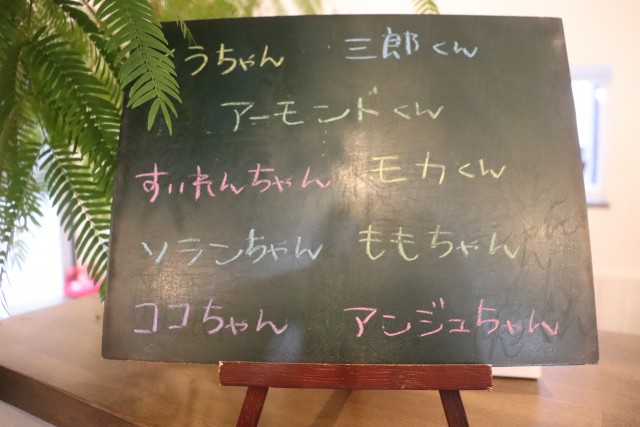 うちゃん 三郎くん
アーモンドくん
すいれんちゃん モカくん
ソランちゃん ももちゃん
ココちゃん アンジュちゃん